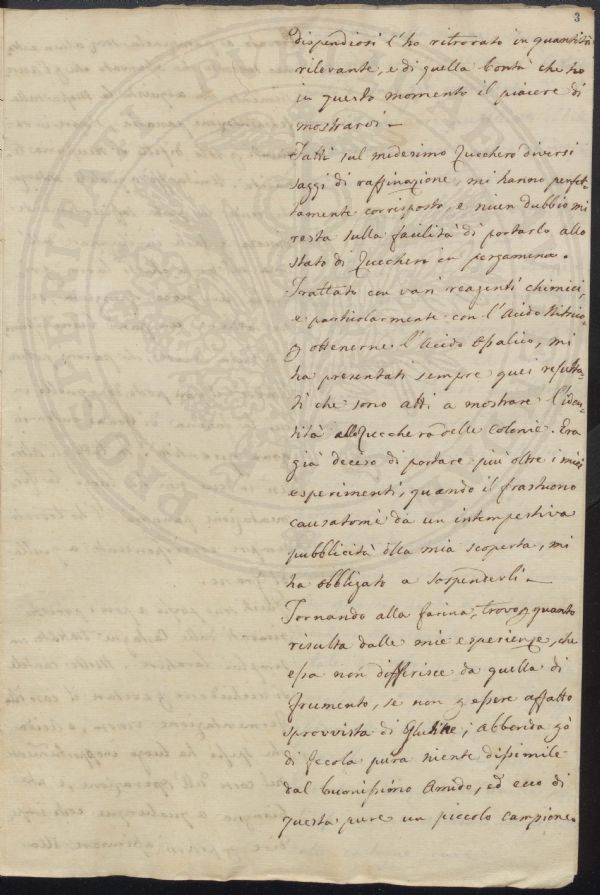 3
dispendiosi l'ho ritrovato in quantità
rilevante, e di quella bontà che ho
in questo momento il piacere di
mostrarvi —
Fatti sul medesimo Zucchero diversi
saggi di raffinazione, mi hanno perfet-
tamente corrisposto, e niun dubbio mi
resta sulla facilità di portarlo allo
stato di Zucchero in pergamena.
Trattato con vari reagenti chimici,
e particolarmente con l'Acido Nitrico
ottenerne l'Acido Ossalico, mi
ha presentati sempre quei resulta-
ti che sono atti a mostrare l'iden-
tità allo Zucchero delle Colonie. Era
già deciso di portare più oltre i miei
esperimenti, quando il frastuono
causatomi da un intempestiva
pubblicità della mia scoperta, mi
ha obbligato a sospenderli —
Tornando alla farina, trovo quanto
risulta dalle mie esperienze, che
essa non differisce da quella di
frumento, se non essere affatto
sprovvista di Glutine; abbonda
di fecola pura niente dissimile
dal buonissimo Amido, ed ecco di
questa pure un piccolo campione.